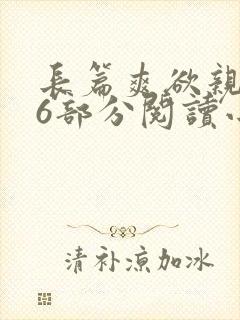 長篇爽欲親
6部分閱讀小
清补凉加冰